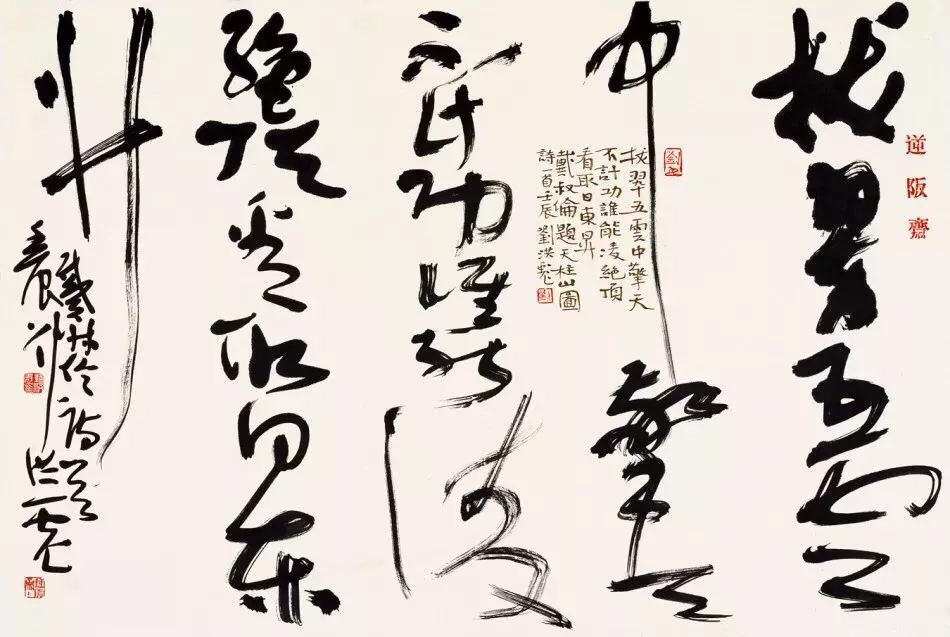 逆阪齋
拔翠五雲
中擎天
拔翠五雲中擎天
不計功誰能凌絕頂
看取日東昇
戴叔倫題天柱山圖
詩一首壬辰劉洪彪
不計功誰能凌
絕頂看取日東
升
戴叔倫詩
洪彪
壬辰